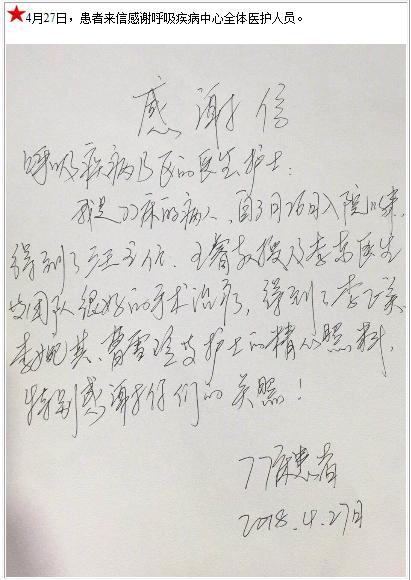 4月27日，患者来信感谢呼吸疾病中心全体医护人员。
感谢信
呼吸疾病B区的医生护士：
我是77床的病人，自3月26日入院以来，
得到了汪主任、王睿教授及李京医生
及团队很好的手术治疗，得到了李
曹雪 及护士的精心照料，
特别感谢你们的关照！
77床患者
2018.4.27日